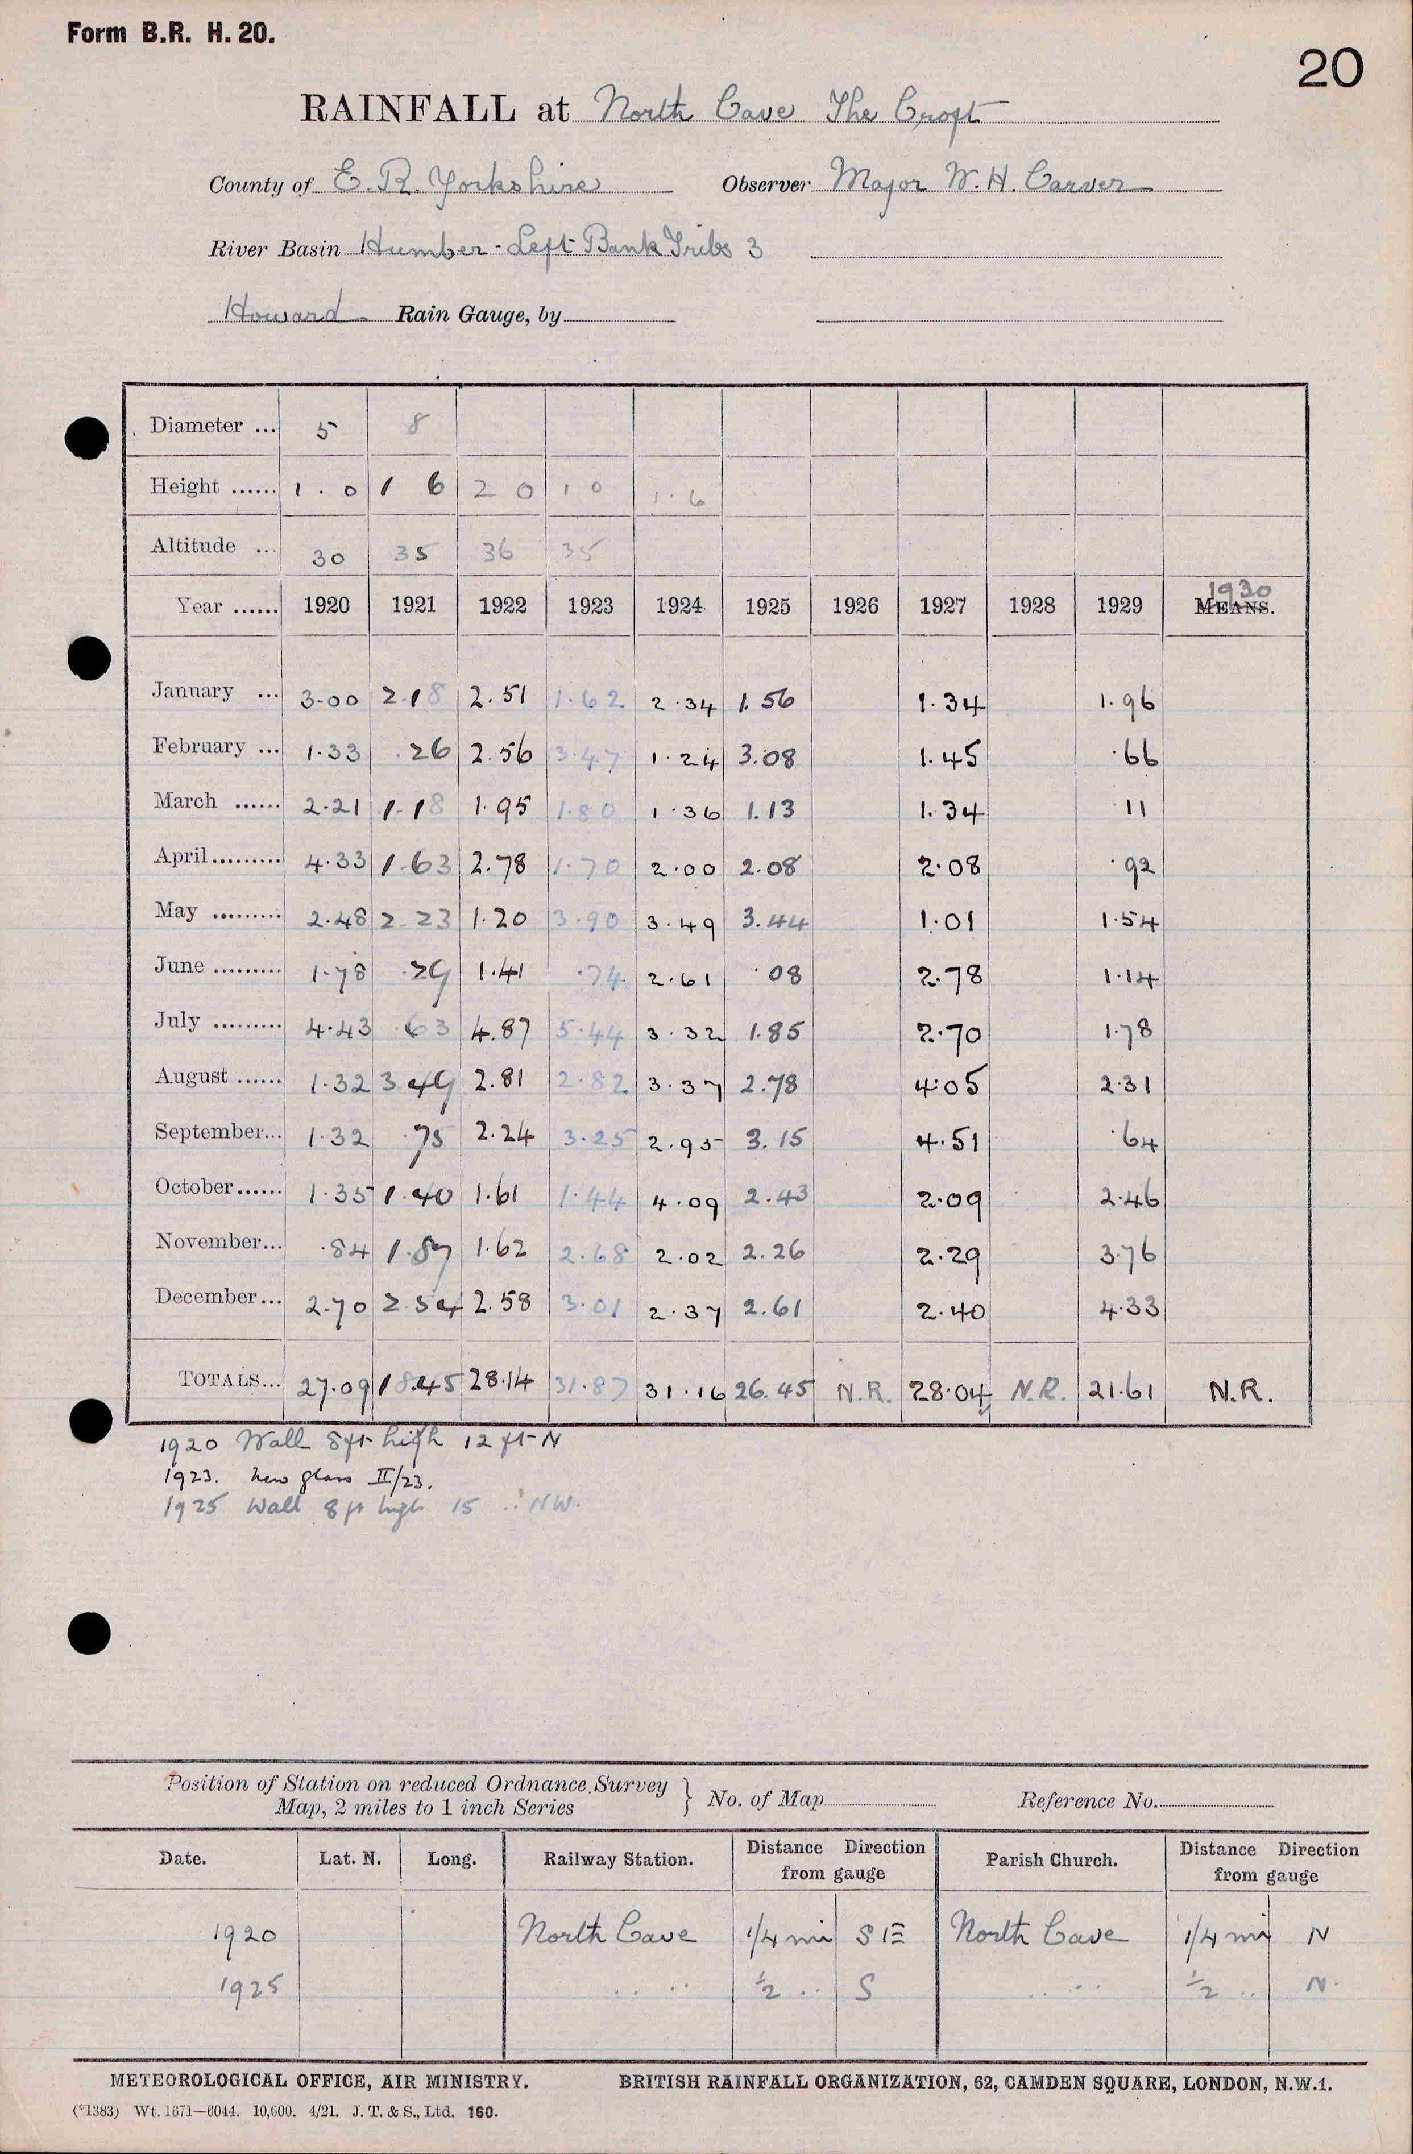 Form B.R. H. 20.
20
RAINFALL at North Cave The Croft
County of E. R. Yorkshire Observer Major W. H. Carver
River Basin Humber - Left Bank Tribs 3
Howard Rain Gauge, by
Diameter ... 5 8
Height ...... 1 . 0 1 6 2 0 1 0 1 . 6
Altitude ... 30 35 36 35
1930
Year ...... 1920 1921 1922 1923 1924 1925 1926 1927 1928 1929 MEANS.
January ... 3.00 2.18 2.51 1.62 2.34 1.56 1.34 1.96
February ... 1.33 .26 2.56 3.47 1.24 3.08 1.45 .66
March ...... 2.21 1.18 1.95 1.80 1.36 1.13 1.34 .11
April ......... 4.33 1.63 2.78 1.70 2.00 2.08 2.08 .92
May ......... 2.48 2.23 1.20 3.90 3.49 3.44 1.01 1.54
June ......... 1.78 .29 1.41 .74 2.61 .08 2.78 1.14
July ......... 4.43 .63 4.87 5.44 3.32 1.85 2.70 1.78
August ...... 1.32 3.49 2.81 2.82 3.37 2.78 4.05 2.31
September... 1.32 .75 2.24 3.25 2.95 3.15 4.51 .64
October...... 1.35 1.40 1.61 1.44 4.09 2.43 2.09 2.46
November... .84 1.87 1.62 2.68 2.02 2.26 2.29 3.76
December... 2.70 2.54 2.58 3.01 2.37 2.61 2.40 4.33
TOTALS... 27.09 18.45 28.14 31.87 31.16 26.45 N.R. 28.04 N.R. 21.61 N.R.
1920 Wall 8 ft high 12 ft N
1923. New glass II/23.
1925 Wall 8 ft high 15 .. NW.
Position of Station on reduced Ordnance Survey
Map, 2 miles to 1 inch Series } No. of Map Reference No.
Date. Lat. N. Long. Railway Station. Distance Direction from gauge Parish Church. Distance Direction from gauge
1920 North Cave 1/4 mi SE North Cave 1/4 mi N
1925 .. .. 1/2 .. S .. .. 1/2 .. N.
METEOROLOGICAL OFFICE, AIR MINISTRY. BRITISH RAINFALL ORGANIZATION, 62, CAMDEN SQUARE, LONDON, N.W.1.
(*1383) Wt. 1671—6044. 10,600. 4/21. J. T. & S., Ltd. 160.